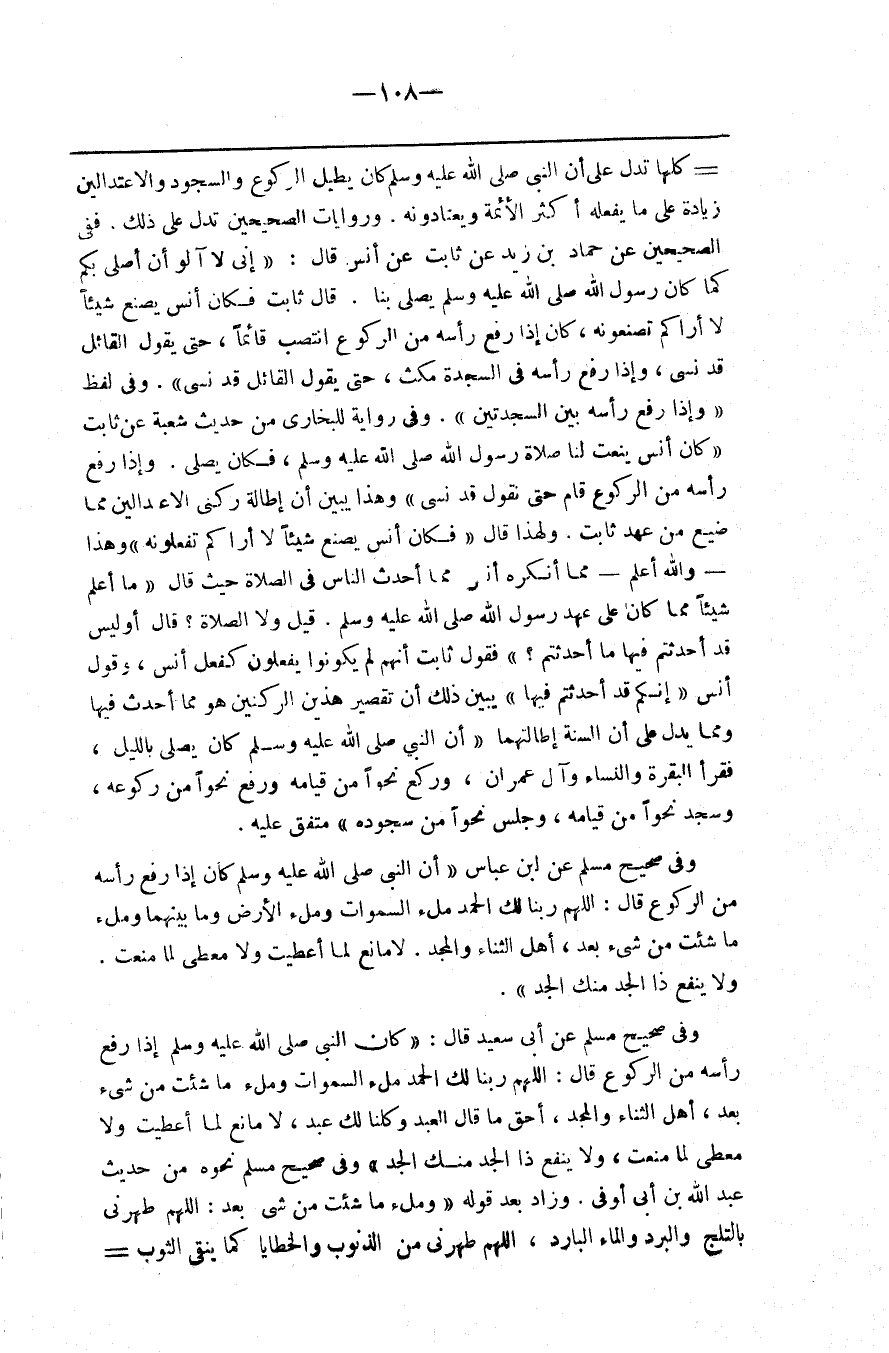 —١٠٨—
= كلها تدل على أن النبى صلى الله عليه وسلم كان يطيل الركوع والسجود والاعتدالين
زيادة على ما يفعله أكثر الأئمة ويعتادونه . وروايات الصحيحين تدل على ذلك . ففى
الصحيحين عن حماد بن زيد عن ثابت عن أنس قال : « إنى لا آلو أن أصلى بكم
كما كان رسول الله صلى الله عليه وسلم يصلى بنا . قال ثابت فكان أنس يصنع شيئاً
لا أراكم تصنعونه ، كان إذا رفع رأسه من الركوع انتصب قائماً ، حتى يقول القائل
قد نسى ، وإذا رفع رأسه فى السجدة مكث ، حتى يقول القائل قد نسى» . وفى لفظ
« وإذا رفع رأسه بين السجدتين » . وفى رواية للبخارى من حديث شعبة عن ثابت
«كان أنس ينعت لنا صلاة رسول الله صلى الله عليه وسلم ، فكان يصلى . وإذا رفع
رأسه من الركوع قام حتى نقول قد نسى » وهذا يبين أن إطالة ركنى الاعدالين مما
ضيع من عهد ثابت . ولهذا قال « فكان أنس يصنع شيئاً لا أراكم تفعلونه »وهذا
— والله أعلم — مما أنكره أنس مما أحدث الناس فى الصلاة حيث قال « ما أعلم
شيئاً مما كان على عهد رسول الله صلى الله عليه وسلم . قيل ولا الصلاة ؟ قال أوليس
قد أحدثتم فيها ما أحدثتم ؟ » فقول ثابت أنهم لم يكونوا يفعلون كفعل أنس ، وقول
أنس « إنكم قد أحدثتم فيها » يبين ذلك أن تقصير هذين الركنين هو مما أحدث فيها
ومما يدل على أن السنة إطالتهما « أن النبي صلى الله عليه وسلم كان يصلى بالليل ،
فقرأ البقرة والنساء وآل عمران ، وركع نحواً من قيامه ورفع نحواً من ركوعه ،
وسجد نحواً من قيامه ، وجلس نحواً من سجوده » متفق عليه .
وفى صحيح مسلم عن ابن عباس « أن النبى صلى الله عليه وسلم كان إذا رفع رأسه
من الركوع قال : اللهم ربنا لك الحمد ملء السموات وملء الأرض وما بينهما وملء
ما شئت من شىء بعد ، أهل الثناء والمجد . لامانع لما أعطيت ولا معطى لما منعت .
ولا ينفع ذا الجد منك الجد » .
وفى صحيح مسلم عن أبى سعيد قال : «كان النبى صلى الله عليه وسلم إذا رفع
رأسه من الركوع قال : اللهم ربنا لك الحمد ملء السموات وملء ما شئت من شىء
بعد ، أهل الثناء والمجد ، أحق ما قال العبد وكلنا لك عبد ، لا مانع لما أعطيت ولا
معطى لما منعت ، ولا ينفع ذا الجد منك الجد » وفى صحيح مسلم نحوه من حديث
عبد الله بن أبى أوفى . وزاد بعد قوله « وملء ما شئت من شى بعد : اللهم طهرنى
بالثلج والبرد والماء البارد ، اللهم طهرنى من الذنوب والخطايا كما ينقى الثوب =